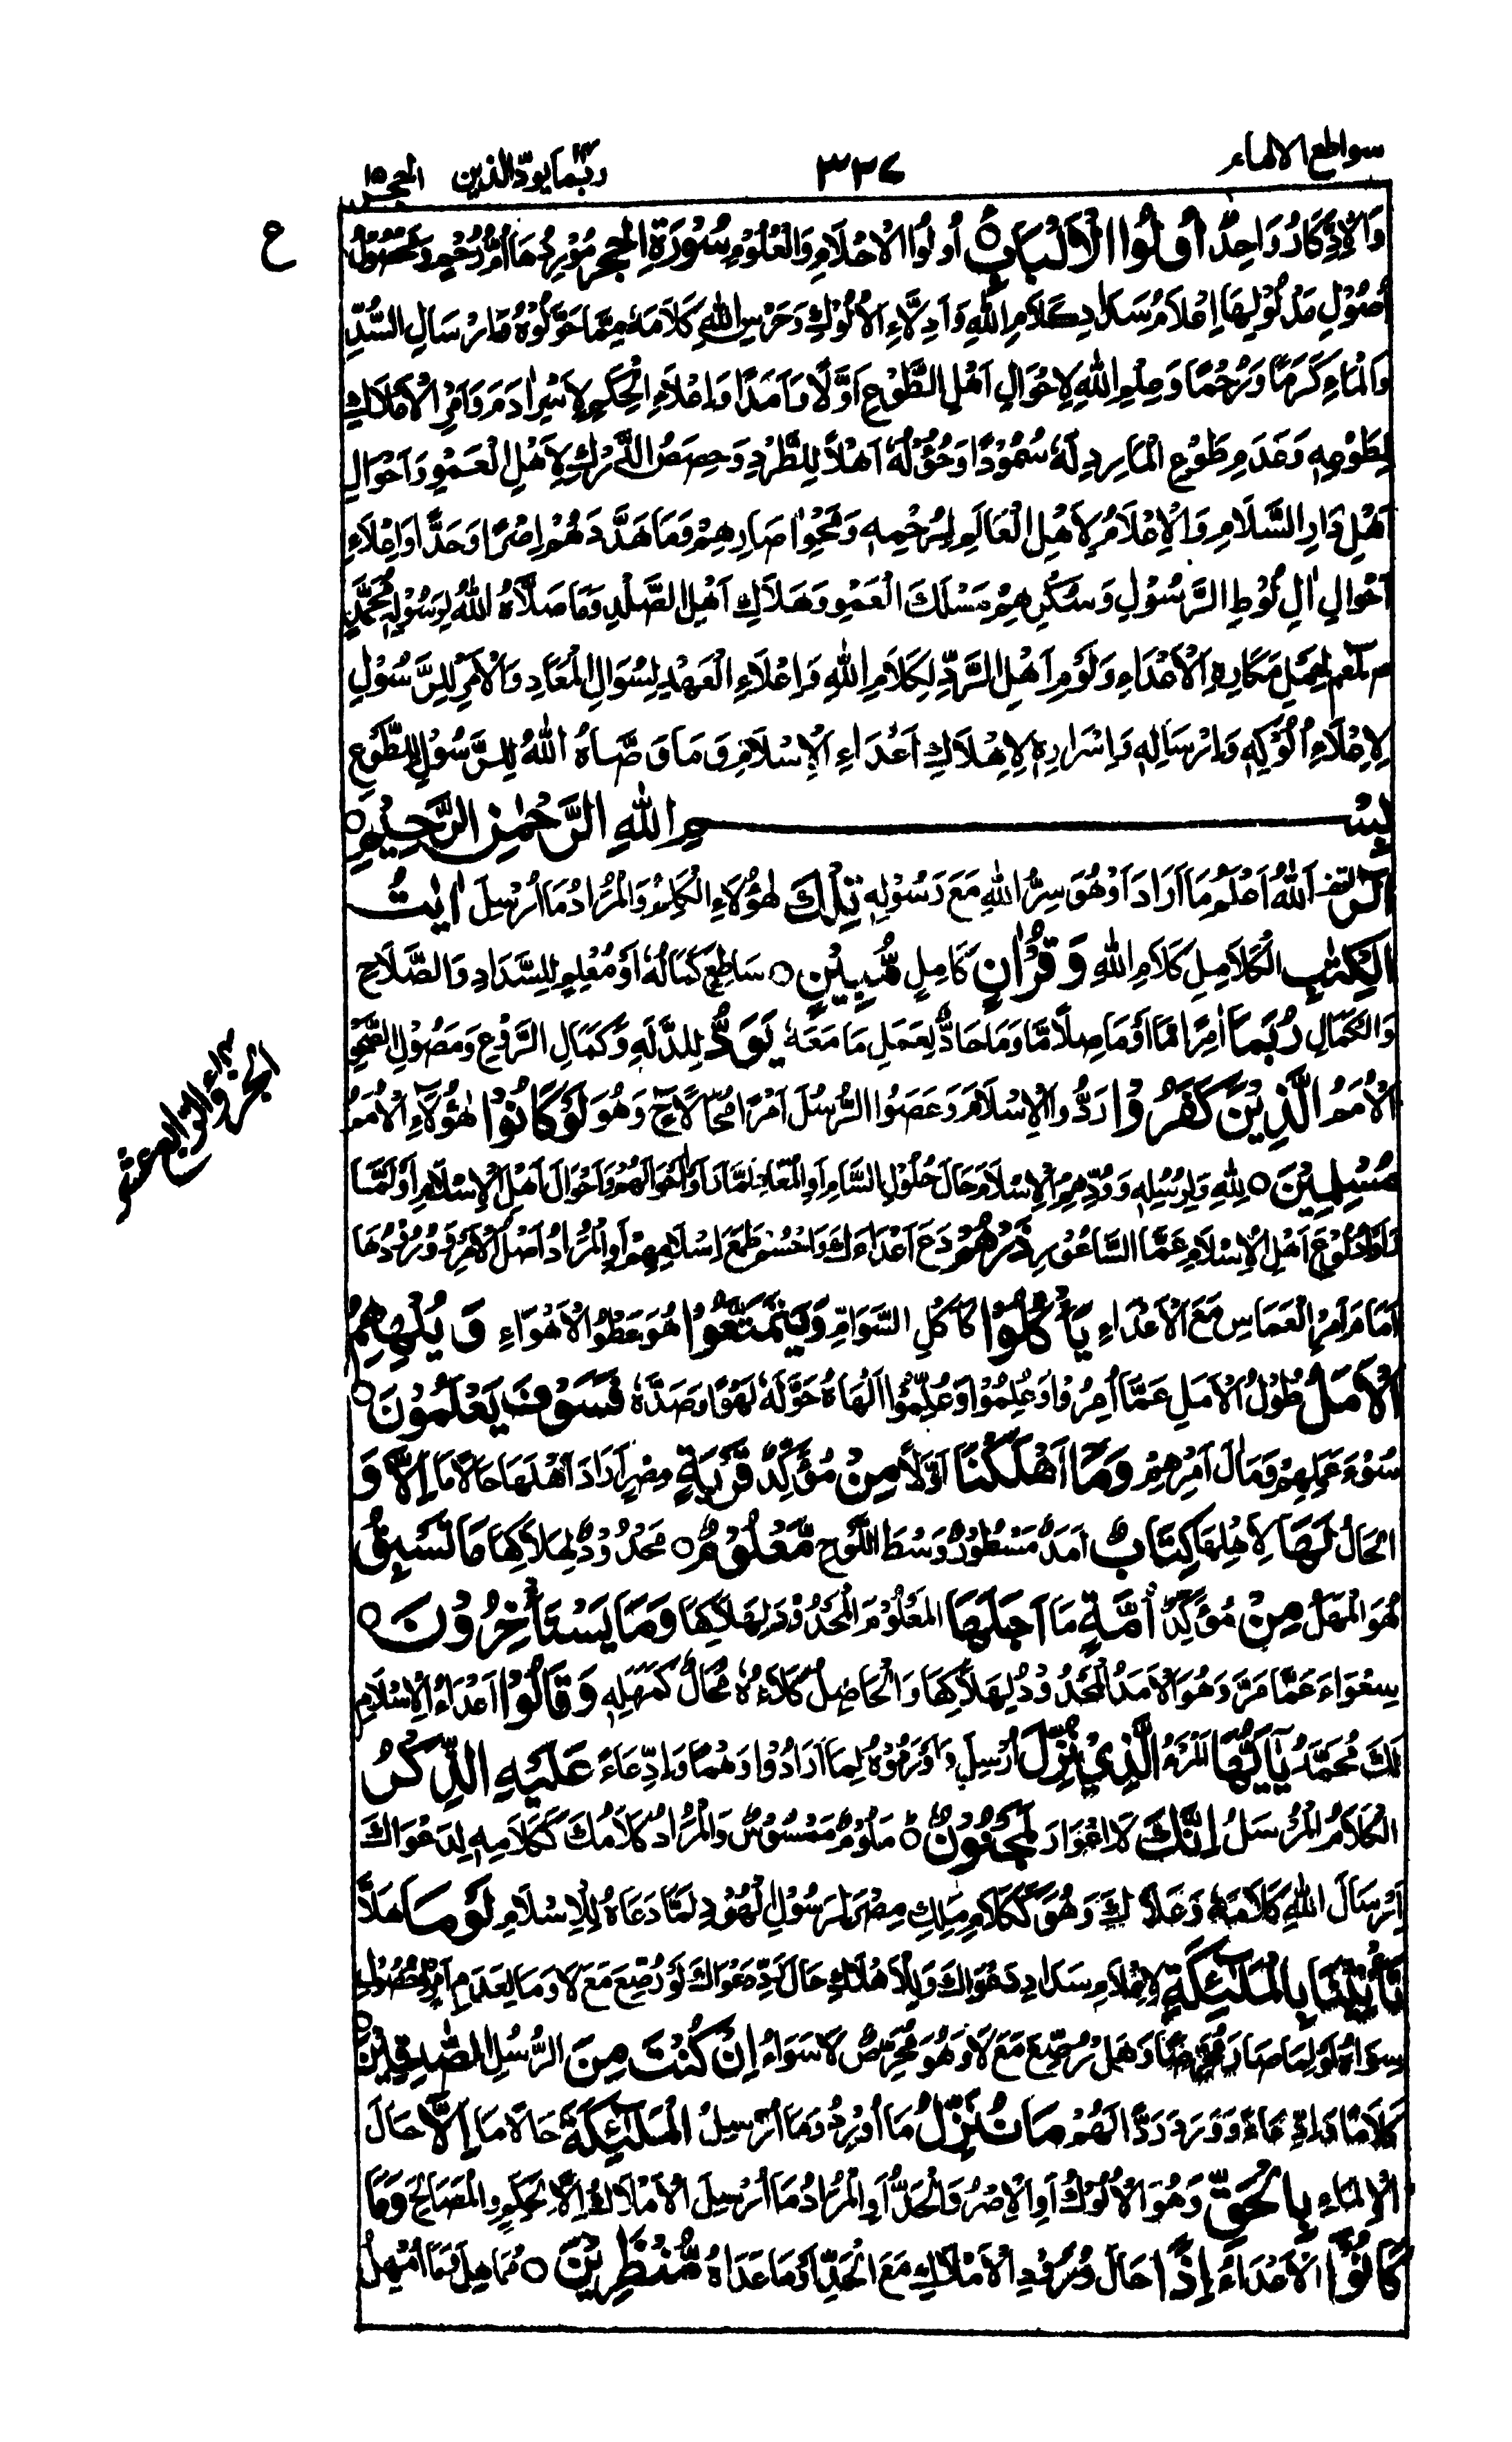 سواطع الالهام
٣٣٧
ربما يودّ الذين ١٤ الحجر ١٥
ع
وَالْاِذِّكَارُ وَاحِدٌ اُولُوا الْاَلْبَابِ ○ اُولُوا الْاَحْلَامِ وَالْعُلُوْمِ سُوْرَةِ الْحِجْرِ مَوْرِدُهَا اُمُّ رُحْمٍ وَمَحْصُوْلُ
اُصُوْلِ مَدْلُوْلِهَا اِعْلَامُ سَدَادِ كَلَامِ اللّٰهِ وَاَدِلَّاءِ الْاُلُوْكِ وَحَرْسِ اللّٰهِ كَلَامَهٗ مِمَّا حَوَّلُوْهُ وَاِرْسَالِ
وَالْمَاءِ كَرَمًا وَرُحْمًا وَعِلْمِ اللّٰهِ لِاَحْوَالِ اَهْلِ الطَّوْعِ اَوَّلًا وَاَمَدًا وَاِعْلَاءِ الْحِكَمِ لِاَسْرِ اٰدَمَ وَاَمْرِ الْاَمْلَاكِ
لِطَوْعِهٖ وَعَدَمِ طَوْعِ الْمَارِدِ لَهٗ سُمُوْدًا وَحُؤُلَهٗ اَهْلًا لِلطَّرْدِ وَحِصَصُ الدَّرْكِ لِاَهْلِ الْعَمْهِ وَاَحْوَالِ
اَهْلِ دَارِ السَّلَامِ وَالْاِعْلَامُ لِاَهْلِ الْعَالَمِ لِرُحْمِهٖ وَمَحْوِ اٰصَارِهِمْ وَمَا هَدَّدَهُمْ اِصْرًا وَحَدًّا وَاِعْلَاءِ
اَحْوَالِ اٰلِ لُوْطِ الرَّسُوْلِ وَسُكْرِهِمْ مَسْلَكَ الْعَمْهِ وَهَلَاكِ اَهْلِ الصَّلْدِ وَمَا صَلَّاهُ اللّٰهُ لِرَسُوْلِهٖ مُحَمَّدٍ
لِحَمْلِ مَكَارِهِ الْاَعْدَاءِ وَلَوْمِ اَهْلِ الرَّدِّ لِكَلَامِ اللّٰهِ وَاِعْلَاءِ الْعَهْدِ لِسُوَالِ الْمَعَادِ وَالْاَمْرُ لِلرَّسُوْلِ
لِاِعْلَاءِ اُلُوْكِهٖ وَاِرْسَالِهٖ وَاِسْرَارِهٖ لِاِهْلَاكِ اَعْدَاءِ الْاِسْلَامِ وَمَا وَصَّاهُ اللّٰهُ لِلرَّسُوْلِ لِلطَّوْعِ
بِسْمِ اللّٰهِ الرَّحْمٰنِ الرَّحِيْمِ ○
الٓرٰ اللّٰهُ اَعْلَمُ مَا اَرَادَ اَوْ هُوَ سِرُّ اللّٰهِ مَعَ رَسُوْلِهٖ تِلْكَ هٰؤُلَاءِ الْكَلِمُ وَالْمُرَادُ مَا اُرْسِلَ اٰيٰتُ
الْكِتٰبِ الْكَلَامِلِ كَلَامِ اللّٰهِ وَقُرْاٰنٍ كَامِلٍ مُّبِيْنٍ ○ سَاطِعٍ كَمَالُهٗ اَوْ مُعْلِمٍ لِلسَّدَادِ وَالصَّلَاحِ
وَالْكَمَالِ رُبَمَا يَوَدُّ لِلدَّلَهِ وَكَمَالِ الرَّوْعِ
الْاُمَمُ الَّذِيْنَ كَفَرُوْا رَدُّوا الْاِسْلَامَ وَعَصَوُا الرُّسُلَ اَمْرًا مُحَالًا وَهُوَ لَوْ كَانُوْا هٰؤُلَاءِ الْاُمَمُ
مُسْلِمِيْنَ ○ لِلّٰهِ وَلِرُسُلِهٖ وَوُدُّهُمُ الْاِسْلَامَ حَالَ حُلُوْلِ السَّامِ اَوِ الْمَعَادِ لَمَّا رَاَوْا اَحْوَالَهُمْ وَاَحْوَالَ اَهْلِ الْاِسْلَامِ اَوْ لَمَّا
اَهْلِ الْاِسْلَامِ عَمَّا السَّاعُوْرِ ذَرْهُمْ دَعْ اَعْدَاءَكَ وَاحْسُمْ طَمَعَ اِسْلَامِهِمْ وَالْمُرَادُ اَصْلُ الْاَمْرِ وَوُرُوْدُهَا
اَمَامَ اَمْرِ الْعَمَاسِ مَعَ الْاَعْدَاءِ يَاْكُلُوْا كَاَكْلِ السَّوَامِّ وَيَتَمَتَّعُوْا هُوَ عَطْوُ الْاَهْوَاءِ وَيُلْهِهِمُ
الْاَمَلُ طُوْلُ الْاَمَلِ عَمَّا اُمِرُوْا وَعُلِمُوْا وَعُلِّمُوْا اَلْهَاهُ حَوَّلَهٗ لَهْوًا وَصَدَّهٗ فَسَوْفَ يَعْلَمُوْنَ ○
سُوْءَ عَمَلِهِمْ وَمَاٰلَ اَمْرِهِمْ وَمَا اَهْلَكْنَا اَوَّلًا مِنْ مُؤَكِّدٌ قَرْيَةٍ مِصْرٍ اَرَادَ اَهْلَهَا حَالًا مَا اِلَّا وَ
الْحَالُ لَهَا لِاَهْلِهَا كِتَابٌ اَمَدٌ مَسْطُوْرٌ وَسْطَ اللَّوْحِ مَّعْلُوْمٌ ○ مَحْدُوْدٌ لِهَلَاكِهَا مَا تَسْبِقُ
هُوَ الْمَهَلُ مِنْ مُؤَكِّدٌ اُمَّةٍ مَا اَجَلَهَا الْمَعْلُوْمَ الْمَحْدُوْدَ لِهَلَاكِهَا وَمَا يَسْتَاْخِرُوْنَ ○
عَمَّا مَرَّ وَهُوَ الْاَمَدُ الْمَحْدُوْدُ لِهَلَاكِهَا وَالْحَاصِلُ كَلَاءُهٗ مُحَالٌ كَمَهَلِهٖ وَقَالُوْا اَعْدَاءُ الْاِسْلَامِ
لَكَ مُحَمَّدُ يٰاَيُّهَا الْمَرْءُ الَّذِيْ نُزِّلَ اُرْسِلَ وَاَوْرَدُوْهُ لِمَا اَرَادُوْا وَهْمًا وَادِّعَاءً عَلَيْهِ الذِّكْرُ
الْكَلَامُ الْمُرْسَلُ اِنَّكَ لَا اعْوَارَ لَمَجْنُوْنٌ ○ مَلُوْمٌ مَمْسُوْسٌ وَالْمُرَادُ كَلَامُكَ كَكَلَامِهٖ لِدَعْوَاكَ
اِرْسَالَ اللّٰهِ كَلَامَهٗ وَعَلَا لَكَ وَهُوَ كَكَلَامِ مَلِكِ مِصْرَ لِرَسُوْلِ الْهُوْدِ لَمَّا دَعَاهُ لِلْاِسْلَامِ لَوْ مَا هَلَّا
تَاْتِيْنَا بِالْمَلٰٓئِكَةِ لِاِعْلَامِ سَدَادِ دَعْوَاكَ وَلِلْاِهْلَاكِ حَالَ رَدِّ دَعْوَاكَ لَوْ رُصِّعَ مَعَ لَا وَمَا لِعَدَمِ اَمْرٍ لِحُصُوْلِ
سِوَاهُ وَهَلْ رُصِّعَ مَعَ لَا وَهُوَ مُحَرِّصٌ لَا سَوَاءٌ اِنْ كُنْتَ مِنَ الرُّسُلِ الصّٰدِقِيْنَ ○
كَلَامًا وَادِّعَاءً وَوَرَدَ رَدًّا لَهُمْ مَا نُنَزِّلُ مَا اُوْرِدُ وَمَا اُرْسِلُ الْمَلٰٓئِكَةَ حَالًا مَا اِلَّا حَالَ
الْاِلْمَاءِ بِالْحَقِّ وَهُوَ الْاُلُوْكُ اَوِ الْاِصْرُ وَالْحَدُّ اَوِ الْمُرَادُ مَا اُرْسِلَ الْاَمْلَاكُ اِلَّا لِحِكَمٍ وَالْمَصَالِحِ وَمَا
كَانُوْا الْاَعْدَاءُ اِذًا حَالَ وُرُوْدِ الْاَمْلَاكِ مَعَ الْحَدِّ اَوْ مَا عَدَاهُ مُّنْظَرِيْنَ ○
الجزء الرابع عشر